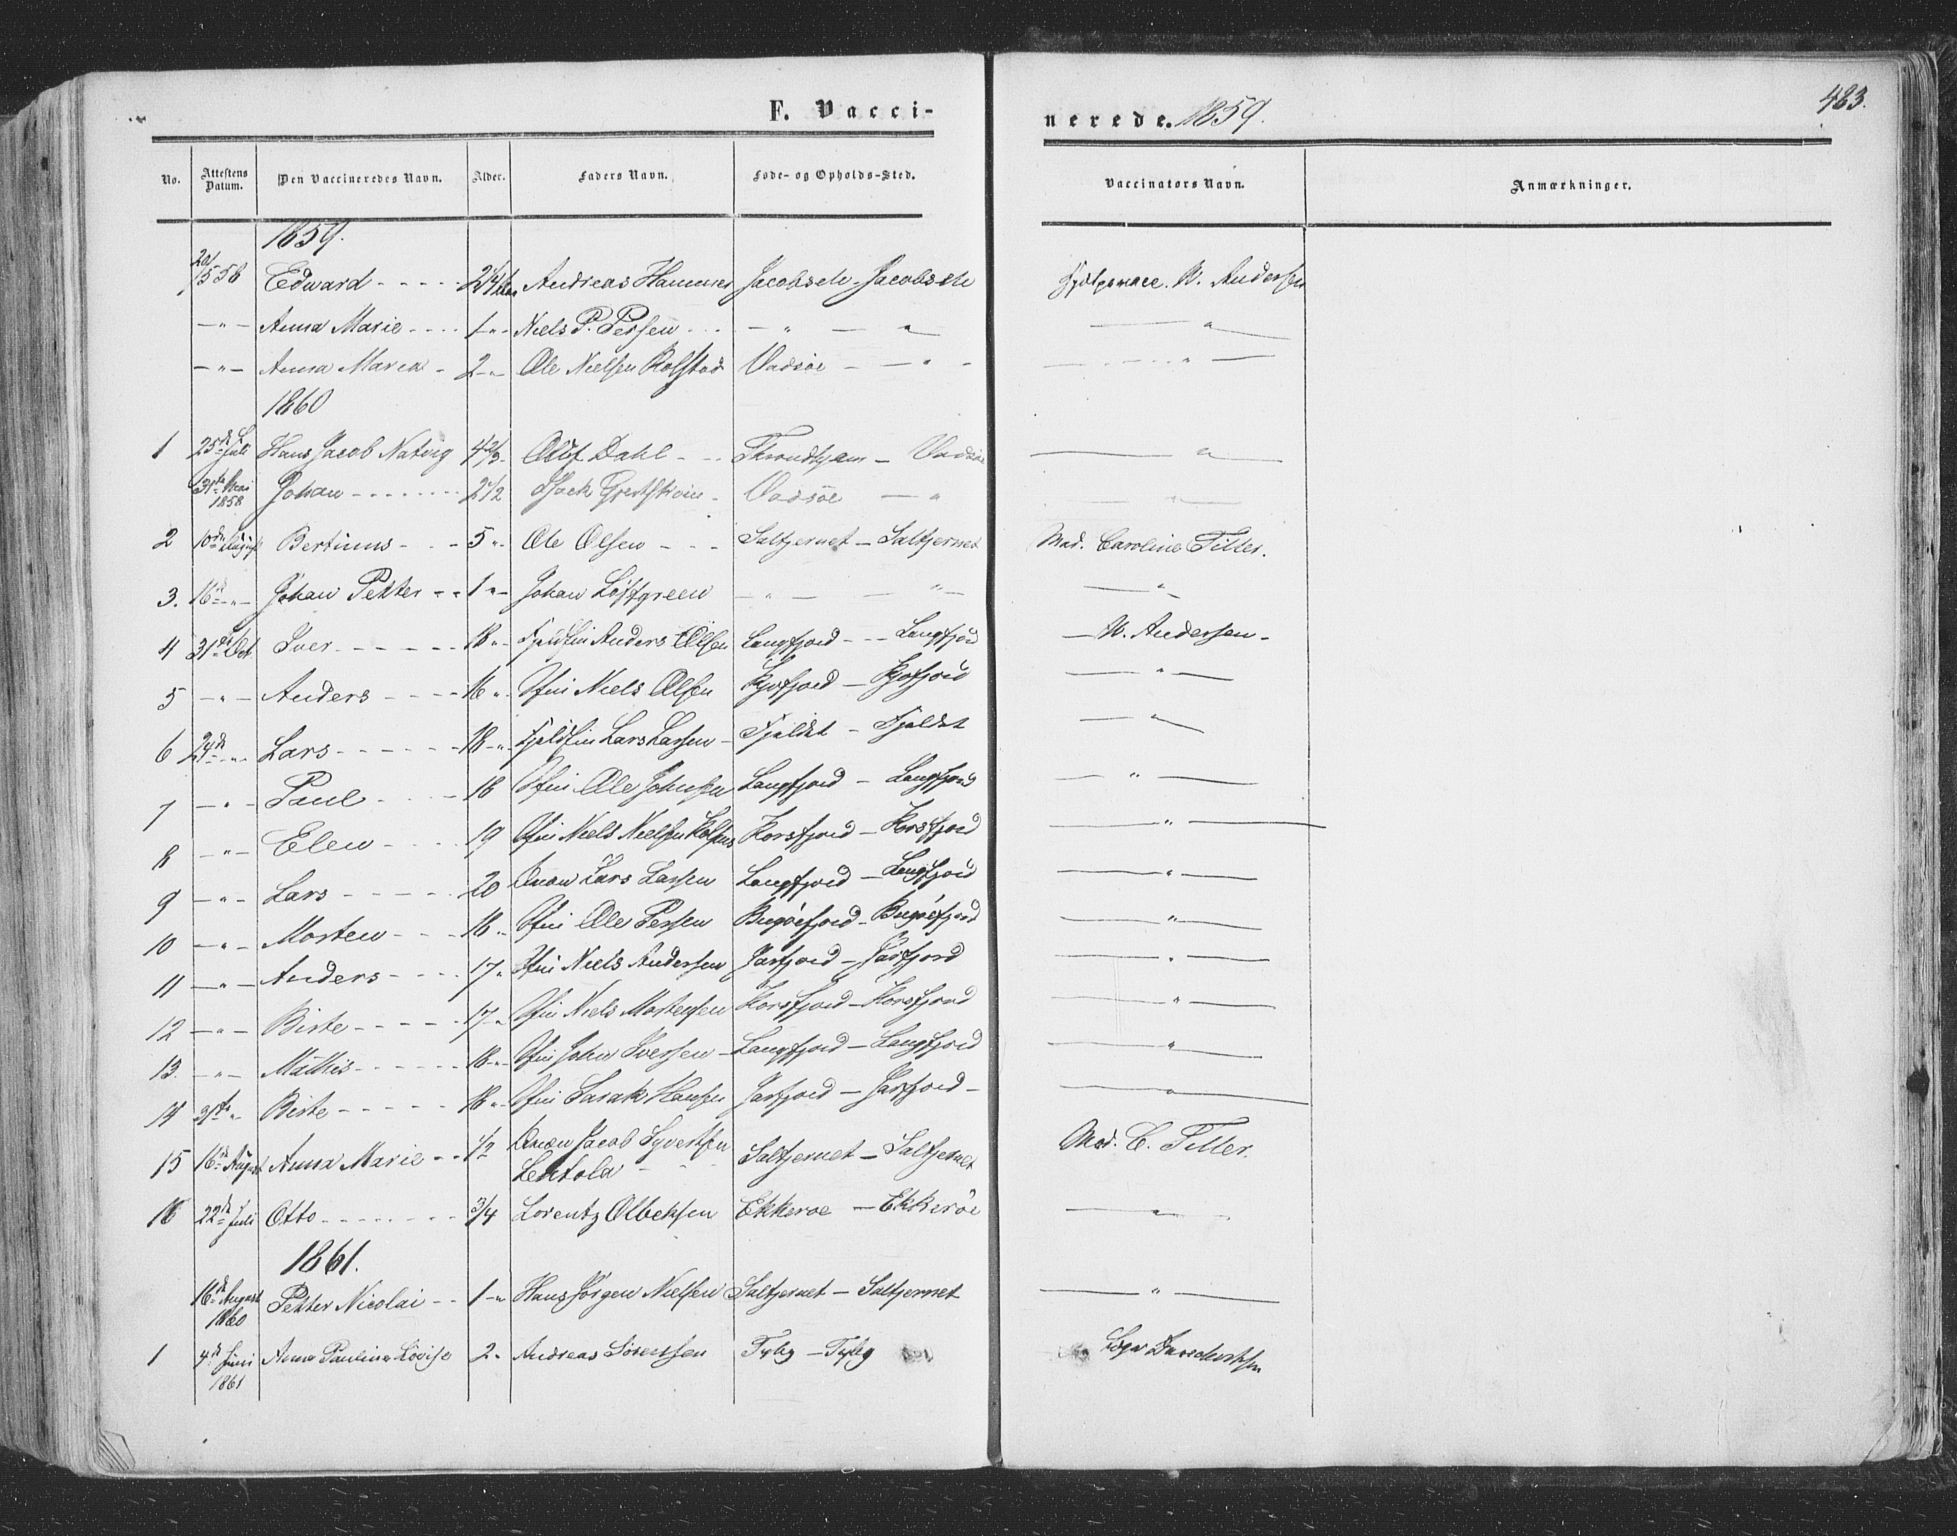 F. Vacci-
nerede. 1859.
483.
No. Attestens Datum. Den Vaccineredes Navn. Alder. Faders Navn. Føde- og Opholds-Sted. Vaccinators Navn. Anmærkninger.
1859.
20/5 58 Edward - - - - Andreas Hammer Jacobselv - Jacobselv W. Andersen
- " - Anna Marie - - - 1 " - Niels P. Persen - - - - " - " - " -
- " - Anna Maria - 2 - " - Ole Nielsen Rolstad Vadsöe - " - - " -
1860
1 25de Juli Hans Jacob Natvig 4 2/3 - Oluf Dahl - - Throndhjem - Vadsöe - " -
31te Mai 1858 Johan - - - - 2 1/2 Isack Vadsöe - " - " -
2 10de August Bertinus - - - 5 " - Ole Olsen - - - Saltjernet - Saltjernet Mad. Caroline Tiller.
3. 16de " - Johan Petter - - 1 " - Johan Löfgreen - " - - " - - " -
4 31te Oct Iver - - - - - 18 " - Fjeldfin Anders Olsen Langfjord - - Langfjord - W. Andersen -
5 - " - Anders - - - - 16 " - Sfin Niels Olsen Kjøfjord - Kjøfjord - " -
6 24de " - Lars - - - - - 18 - " - Fjeldfin Lars Larsen - Fjeldet - Fjeldet - " -
7 - " - Paul - - - 18 Sfin Ole Johnsen Langfjord - Langfjord - " -
8 - " - Elen - - - - 19 Sfin Niels Nielsen Korsfjord - Korsfjord - " -
9 - " - Lars - - - - - 20 Qvæn Lars Larsen Langfjord - Langfjord - " -
10 - " - Morten - - - 18 " - Sfin Ole Persen Bugöefjord - Bugöefjord - " -
11 - " - Anders - - - - 17 " Sfin Niels Andersen Jarfjord - Jarfjord - " -
12 - " - Birte - - - - - 17 - " Sfin Niels Mortensen Korsfjord - Korsfjord - " -
13. - " - Mathis - - - - - 18 - " - Sfin John Iversen - Langfjord - Langfjord - " -
14 31te " - Birte - - - - - 18 " - Sfin Hansen Jarfjord - Jarfjord - - " -
15 16de August Anna Marie - - 1/2 Qvæn Jacob Syvertsen
Saltjernet - Saltjernet Mad. C. Tiller.
16 22de Juli Otto - - - - - 3/4 Lorentz Olbertsen Ekkeröe - Ekkeröe - " -
1861.
16de August 1860 Petter Nicolai - - 1 - " Hans Jörgen Nielsen Saltjernet - Saltjernet - " -
1 4de Juni 1861 Anna Paulina Lovise 2 - Andreas Sörensen Fyby - Fyby